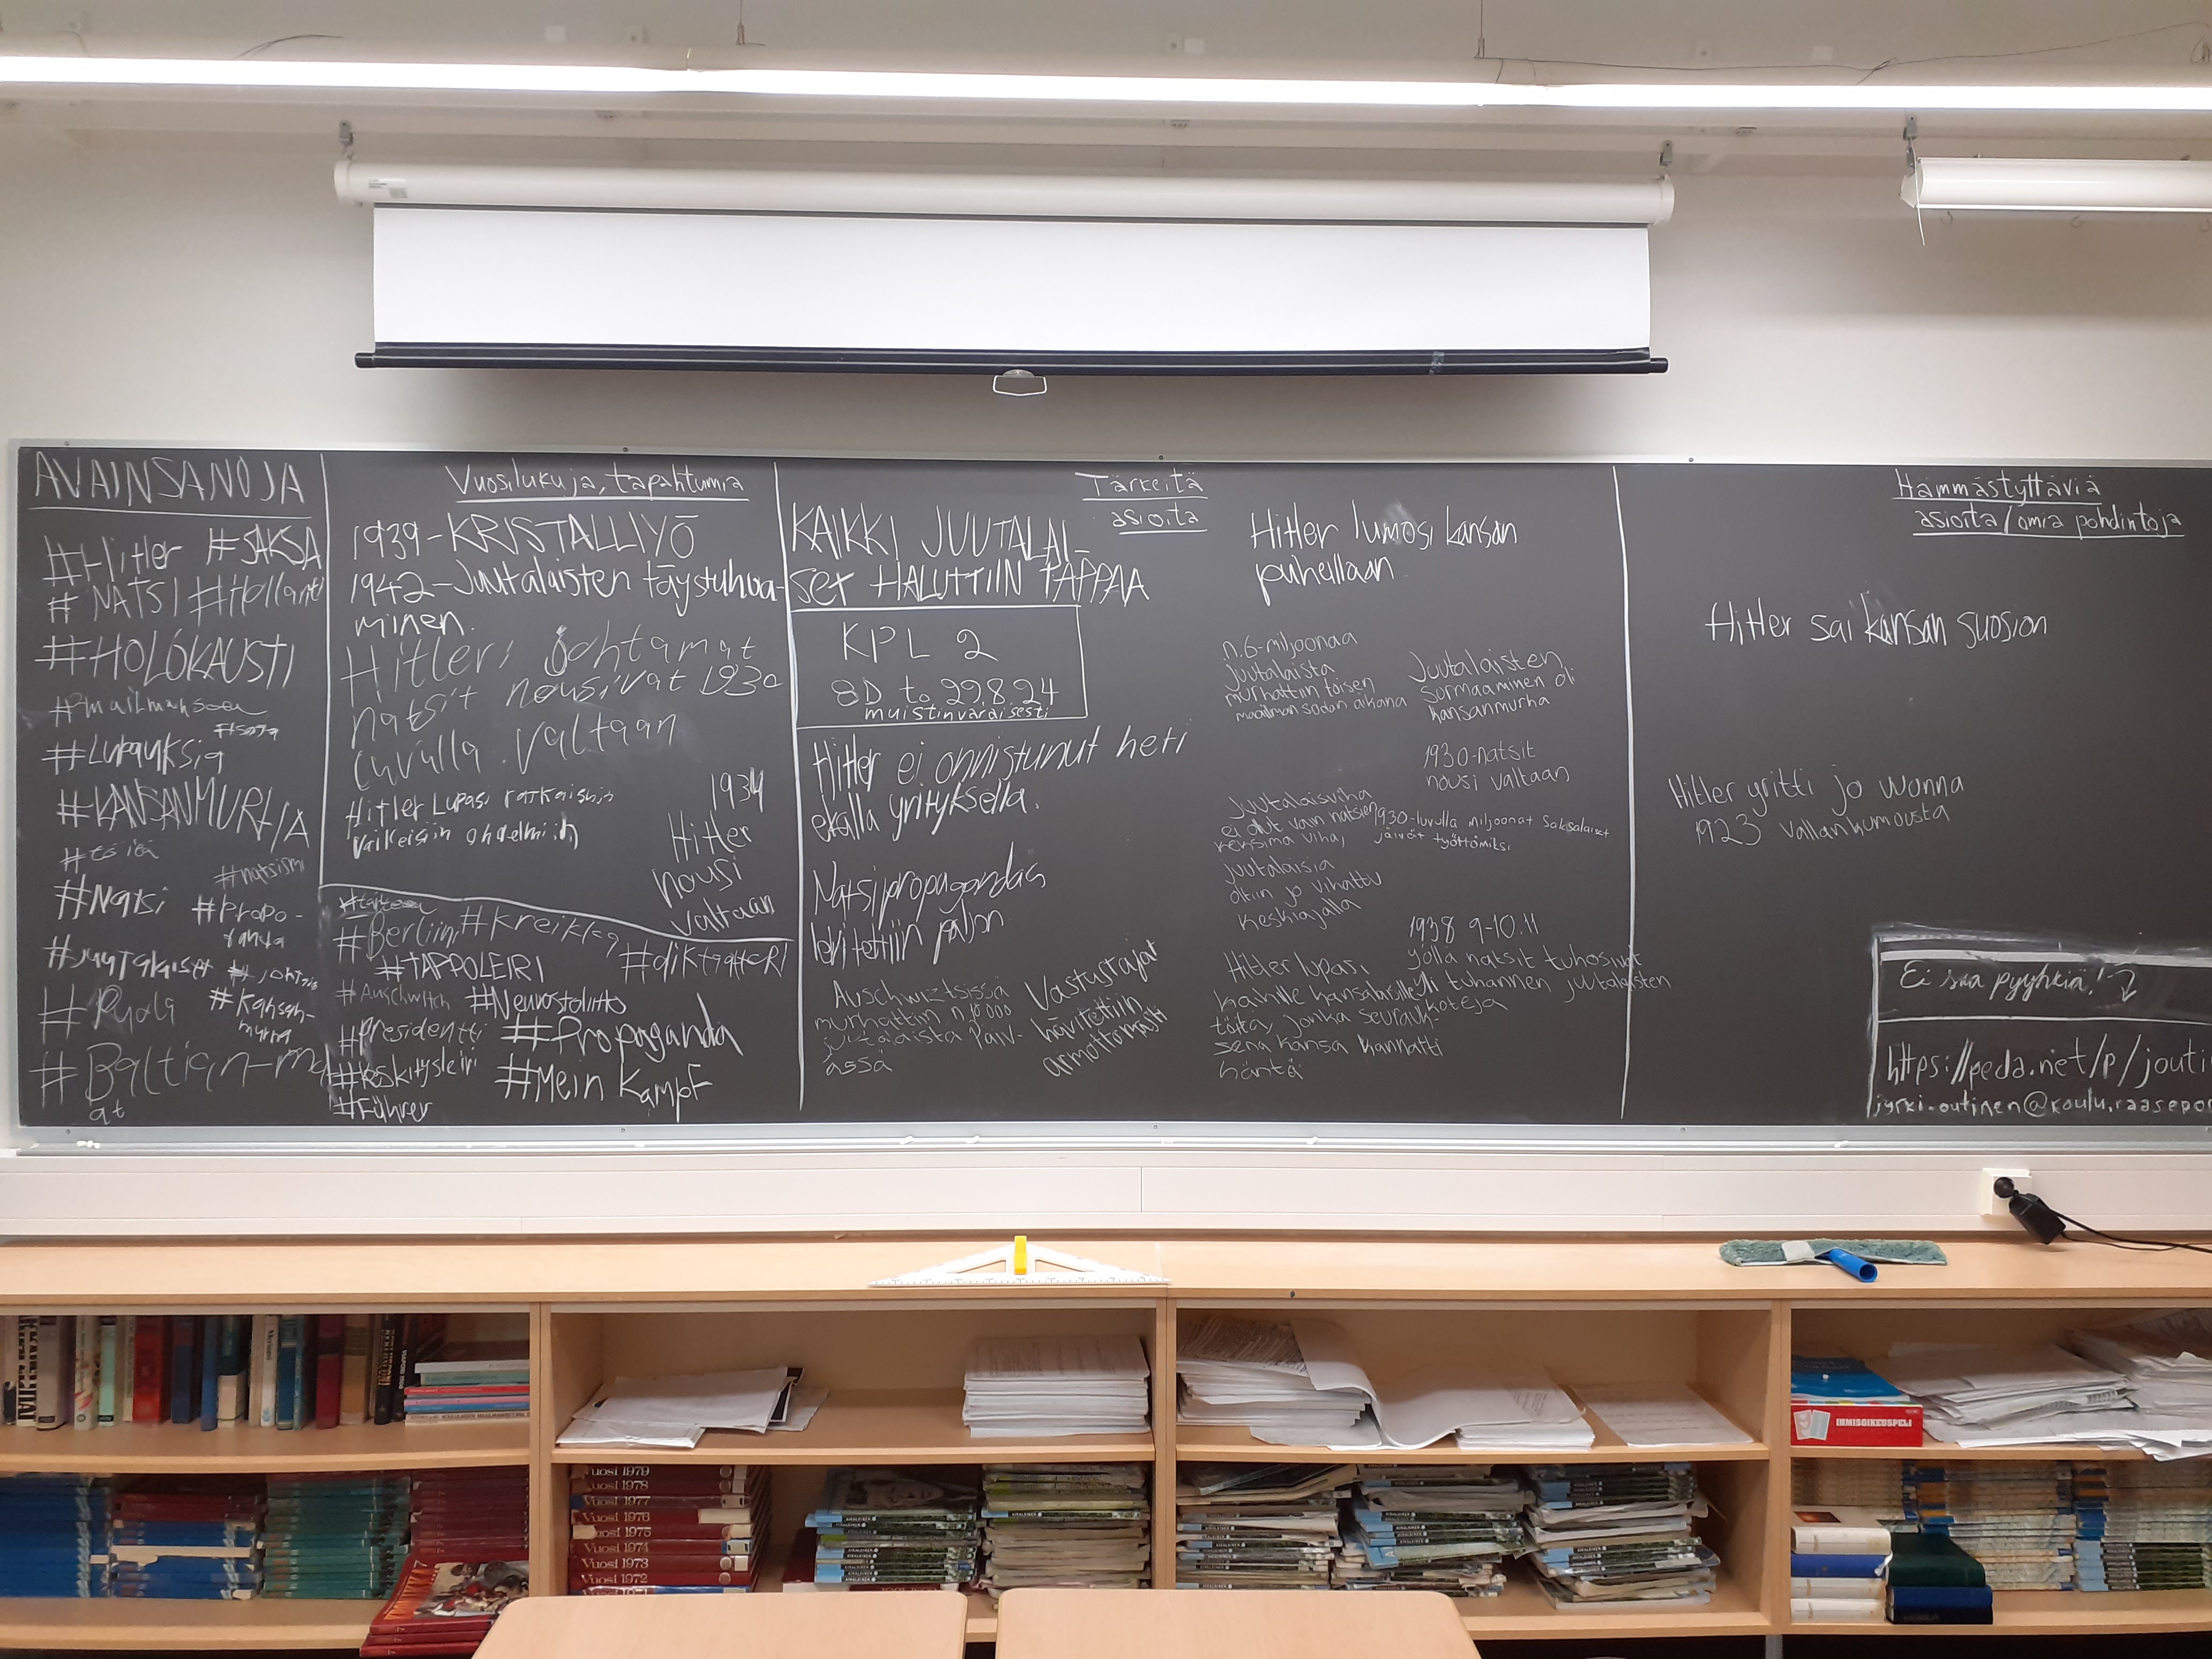 AVAINSANOJA
#Hitler #SAKSA
#NATSI #Hollanti
#HOLOKAUSTI
#Lupauksia
#KANSANMURHA
#töitä
#natsismi
#Natsi #Propo-
ganda
#Juutalaiset
#Puola #Kansan-
murha
#Baltian-ma
at
Vuosilukuja, tapahtumia
1939-KRISTALLIYÖ
1942-Juutalaisten täystuhoa-
minen.
Hitler, johtamat
natsit nousivat 1930
luvulla valtaan
Hitler Lupasi ratkaisun
vaikeisiin ongelmiin
1934
Hitler
nousi
valtaan
#Berliini #kreikka
#TAPPOLEIRI #diktaatteRI
#Auschwitch #Neuvostoliitto
#presidentti #Propaganda
#keskitysleiri #Mein Kampf
#Führer
Tärkeitä
asioita
KAIKKI JUUTALAI-
SET HALUTTIIN TAPPAA
KPL 2
8D to 29.8.24
muistinvaraisesti
Hitler ei onnistunut heti
ekalla yrityksellä.
Natsipropagandaa
levitettiin paljon
Auschwiztsissä
murhattiin n.10 000
juutalaista Päiv-
ässä
Vastustajat
hävitettiin
armottomasti
Hitler lumosi kansan
puheillaan
n.6-miljoonaa
Juutalaista
murhattiin toisen
maailman sodan aikana
Juutalaisten
surmaaminen oli
kansanmurha
1930-natsit
nousi valtaan
Juutalaisviha
ei olut vain natsien
keksimä viha,
juutalaisia
oltiin jo vihattu
keskiajalla
1930-luvulla miljoonat Saksalaiset
jäivät työttömiksi
1938 9-10.11
yöllä natsit tuhosivat
yli tuhannen juutalaisten
koteja
Hitler lupasi
kaikille kansalaisille
töitä, jonka seurauk-
sena kansa kannatti
häntä
Hämmästyttäviä
asioita/omia pohdintoja
Hitler sai kansan suosion
Hitler yritti jo vuonna
1923 vallankumousta
Ei saa pyyhkiä!
https://peda.net/p/jouti
jyrki.outinen@koulu.raasepor
IHMISOIKEUSPELI
Vuosi 1979
Vuosi 1978
Vuosi 1977
Vuosi 1976
Vuosi 1975
Vuosi 1974
Vuosi 1973
Vuosi 1972